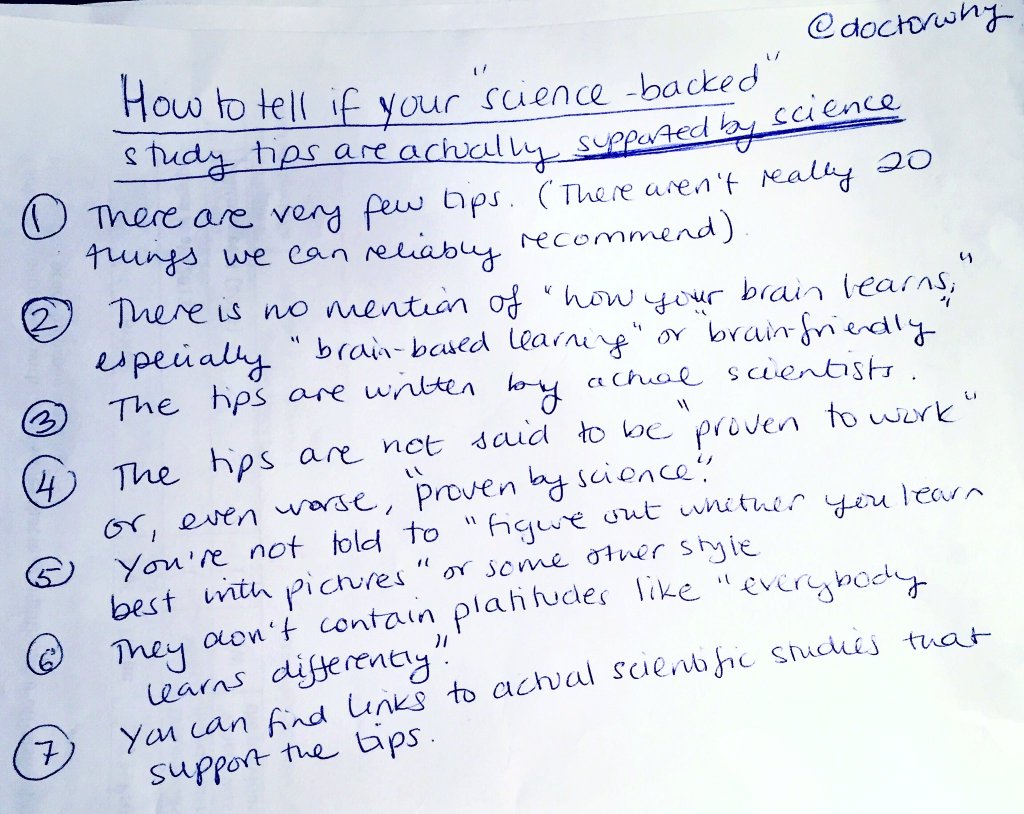 @doctorwhy
How to tell if your "science-backed"
study tips are actually supported by science
① There are very few tips. (There aren't really 20
things we can reliably recommend).
② There is no mention of "how your brain learns,"
especially "brain-based learning" or "brain-friendly"
③ The tips are written by actual scientists.
④ The tips are not said to be "proven to work"
or, even worse, "proven by science".
⑤ You're not told to "figure out whether you learn
best with pictures" or some other style
⑥ They don't contain platitudes like "everybody
learns differently".
⑦ You can find links to actual scientific studies that
support the tips.